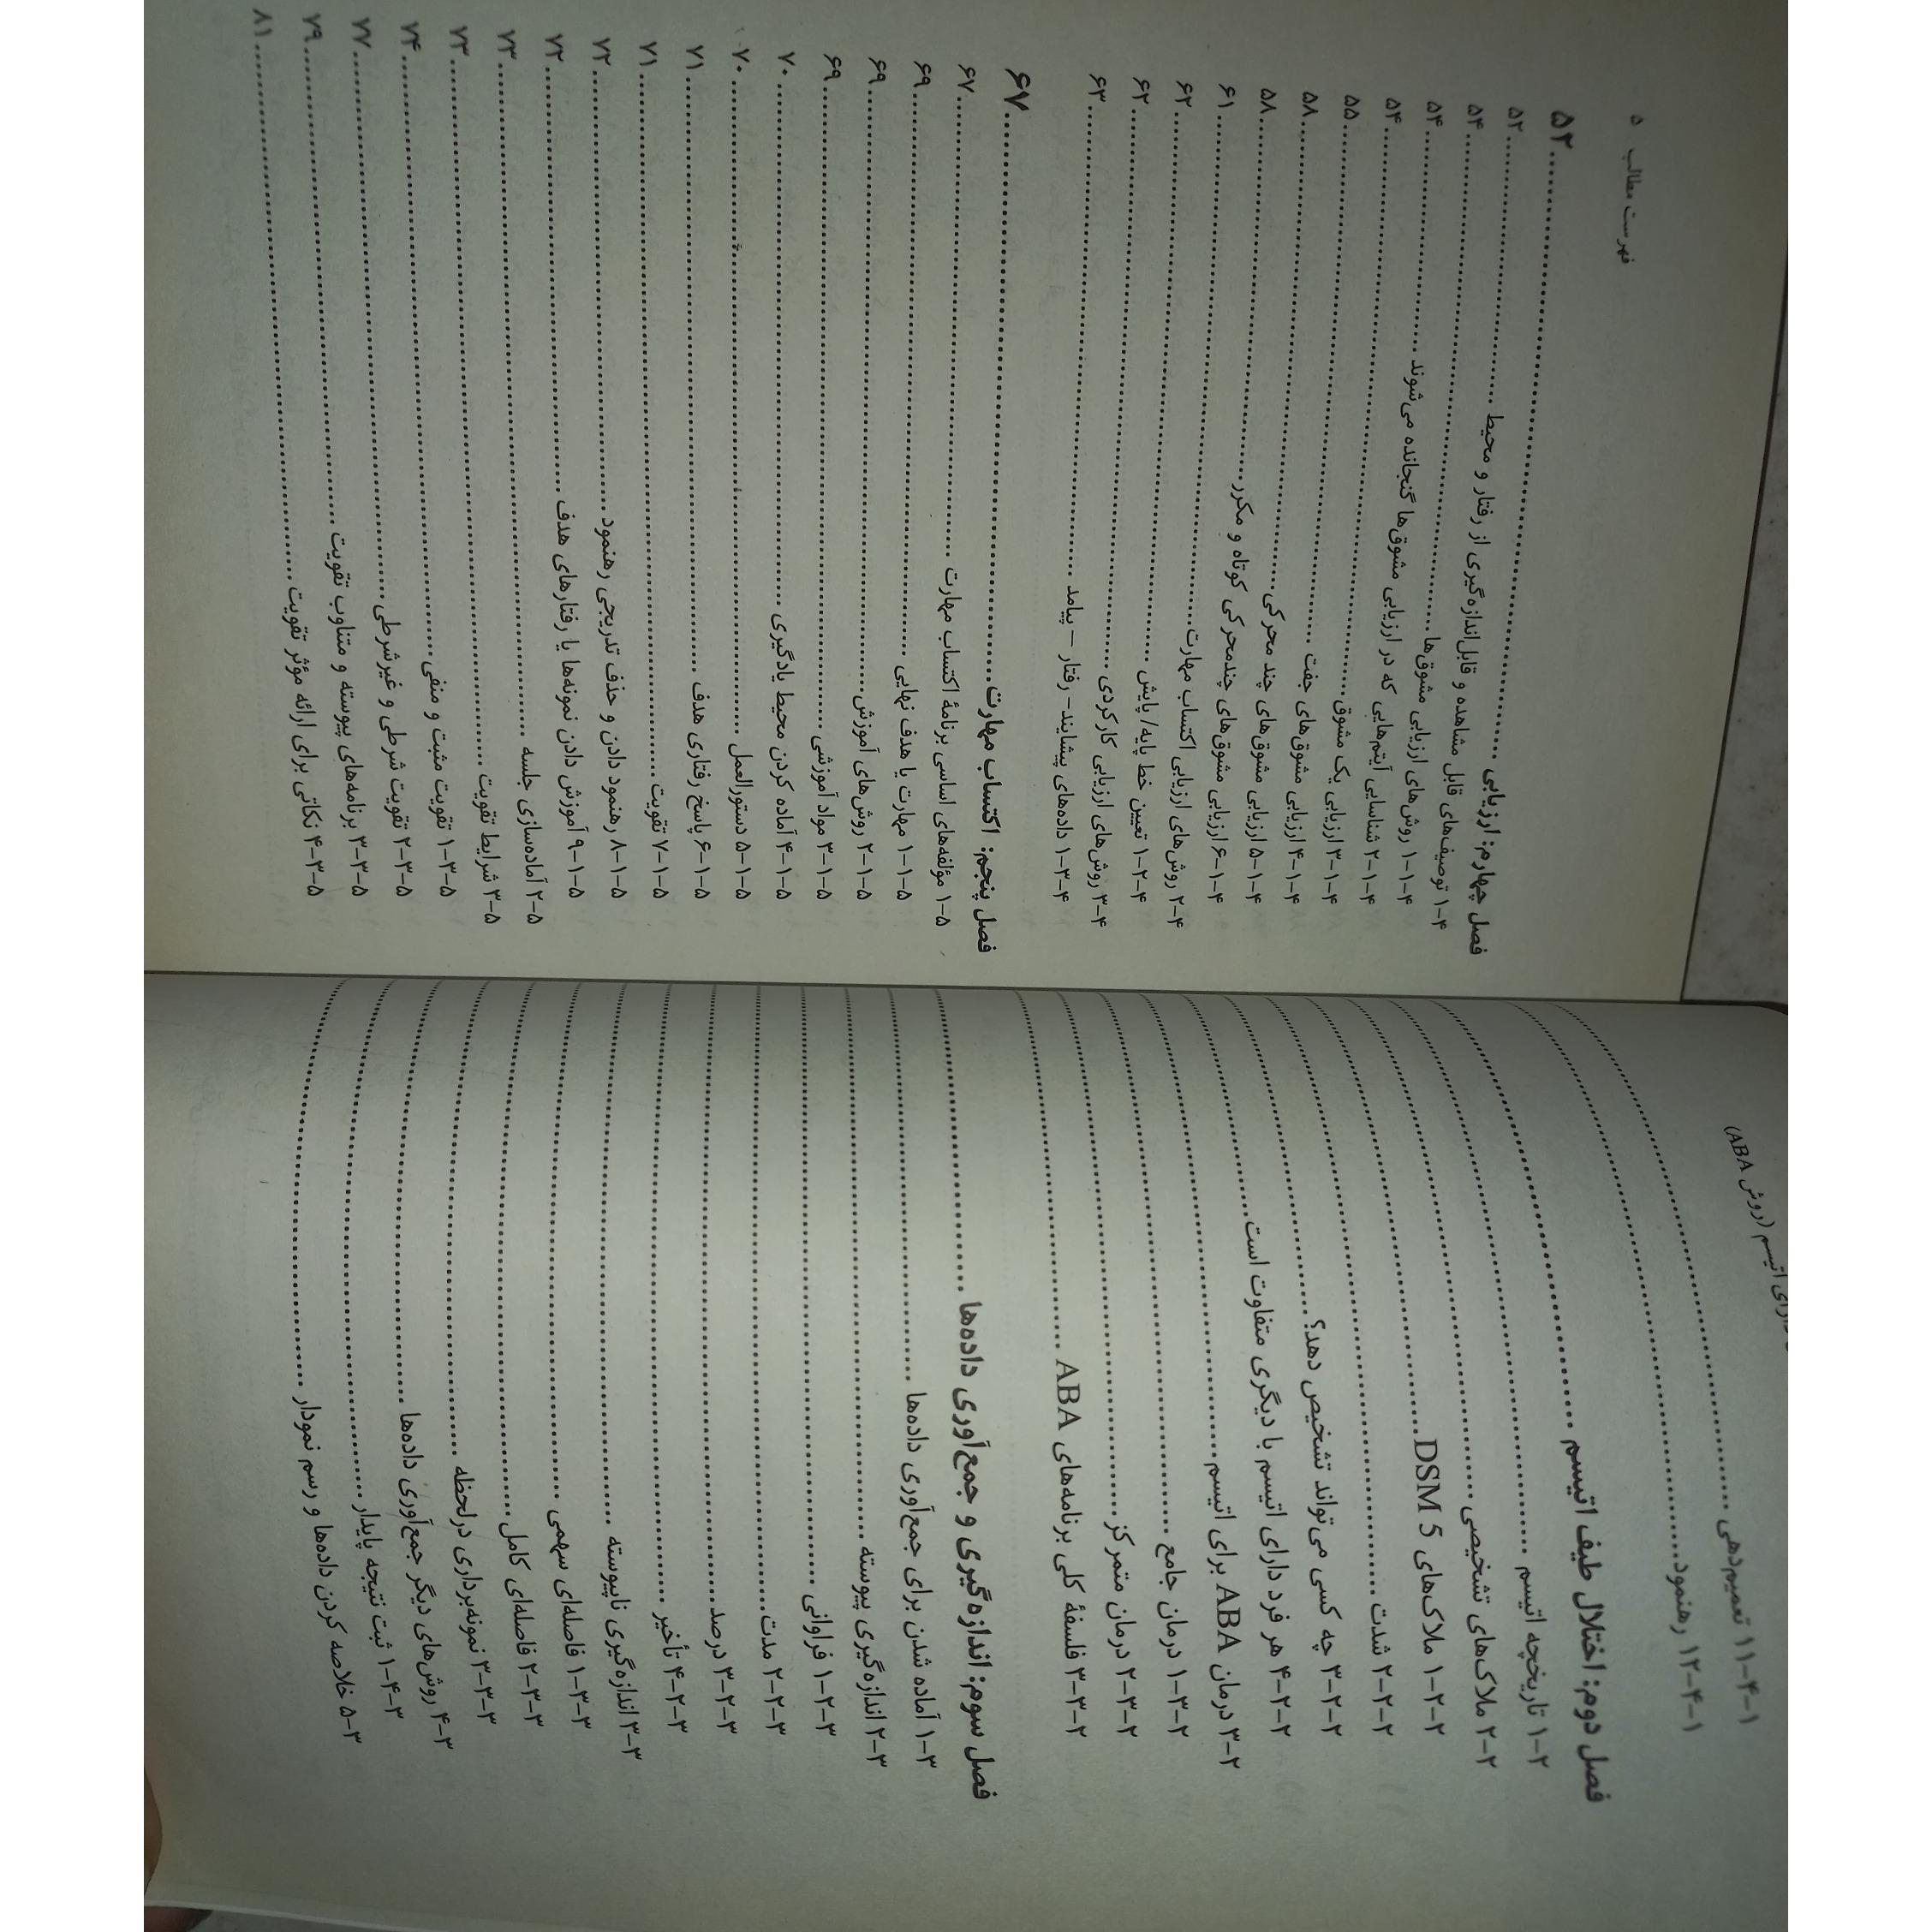 دارای اتیسم (روش ABA)
۱-۴-۱۱ تعمیم‌دهی
۱-۴-۱۲ رهنمود
فصل دوم: اختلال طیف اتیسم
۲-۱ تاریخچه اتیسم
۲-۲ ملاک‌های تشخیصی
۲-۲-۱ ملاک‌های DSM 5
۲-۲-۲ شدت
۲-۲-۳ چه کسی می‌تواند تشخیص دهد؟
۲-۲-۴ هر فرد دارای اتیسم با دیگری متفاوت است
۲-۳ درمان ABA برای اتیسم
۲-۳-۱ درمان جامع
۲-۳-۲ درمان متمرکز
۲-۳-۳ فلسفهٔ کلی برنامه‌های ABA
فصل سوم: اندازه‌گیری و جمع‌آوری داده‌ها
۳-۱ آماده شدن برای جمع‌آوری داده‌ها
۳-۲ اندازه‌گیری پیوسته
۳-۲-۱ فراوانی
۳-۲-۲ مدت
۳-۲-۳ درصد
۳-۲-۴ تأخیر
۳-۳ اندازه‌گیری ناپیوسته
۳-۳-۱ فاصله‌ای سهمی
۳-۳-۲ فاصله‌ای کامل
۳-۳-۳ نمونه‌برداری درلحظه
۳-۴ روش‌های دیگر جمع‌آوری داده‌ها
۳-۴-۱ ثبت نتیجه پایدار
۳-۵ خلاصه کردن داده‌ها و رسم نمودار
فهرست مطالب ۵
فصل چهارم: ارزیابی ۵۲
۴-۱ توصیف‌های قابل مشاهده و قابل‌اندازه‌گیری از رفتار و محیط ۵۲
۴-۱-۱ روش‌های ارزیابی مشوق‌ها ۵۴
۴-۱-۲ شناسایی آیتم‌هایی که در ارزیابی مشوق‌ها گنجانده می‌شوند ۵۴
۴-۱-۳ ارزیابی یک مشوق ۵۴
۴-۱-۴ ارزیابی مشوق‌های جفت ۵۵
۴-۱-۵ ارزیابی مشوق‌های چند محرکی ۵۸
۴-۱-۶ ارزیابی مشوق‌های چندمحرکی کوتاه و مکرر ۵۸
۴-۲ روش‌های ارزیابی اکتساب مهارت ۶۱
۴-۲-۱ تعیین خط پایه/ پایش ۶۲
۴-۳ روش‌های ارزیابی کارکردی ۶۲
۴-۳-۱ داده‌های پیشایند- رفتار – پیامد ۶۳
فصل پنجم: اکتساب مهارت ۶۷
۵-۱ مؤلفه‌های اساسی برنامهٔ اکتساب مهارت ۶۷
۵-۱-۱ مهارت یا هدف نهایی ۶۹
۵-۱-۲ روش‌های آموزش ۶۹
۵-۱-۳ مواد آموزشی ۶۹
۵-۱-۴ آماده کردن محیط یادگیری ۷۰
۵-۱-۵ دستورالعمل ۷۰
۵-۱-۶ پاسخ رفتاری هدف ۷۱
۵-۱-۷ تقویت ۷۱
۵-۱-۸ رهنمود دادن و حذف تدریجی رهنمود ۷۲
۵-۱-۹ آموزش دادن نمونه‌ها یا رفتارهای هدف ۷۲
۵-۲ آماده‌سازی جلسه ۷۳
۵-۳ شرایط تقویت ۷۳
۵-۳-۱ تقویت مثبت و منفی ۷۴
۵-۳-۲ تقویت شرطی و غیرشرطی ۷۷
۵-۳-۳ برنامه‌های پیوسته و متناوب تقویت ۷۹
۵-۳-۴ نکاتی برای ارائه مؤثر تقویت ۸۱